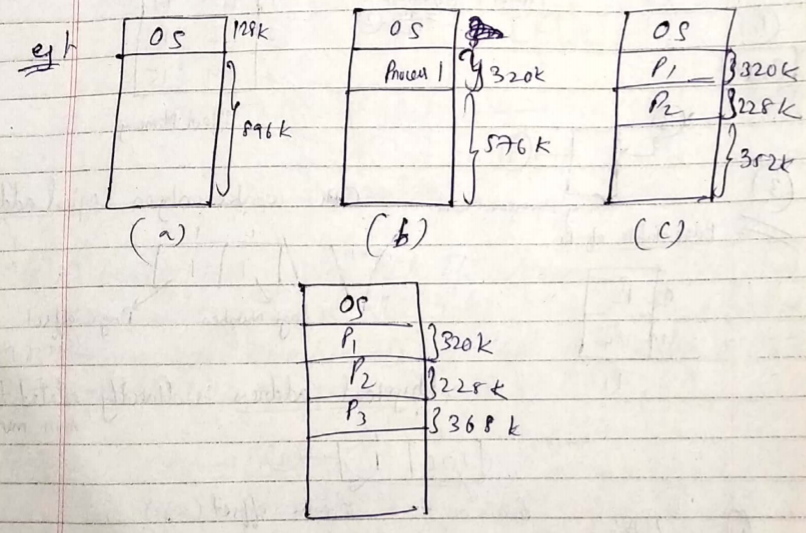 eg
OS 128k
896k
(a)
OS
Process 1 320k
576k
(b)
OS
P1 320k
P2 228k
352k
(c)
OS
P1 320k
P2 228k
P3 368k